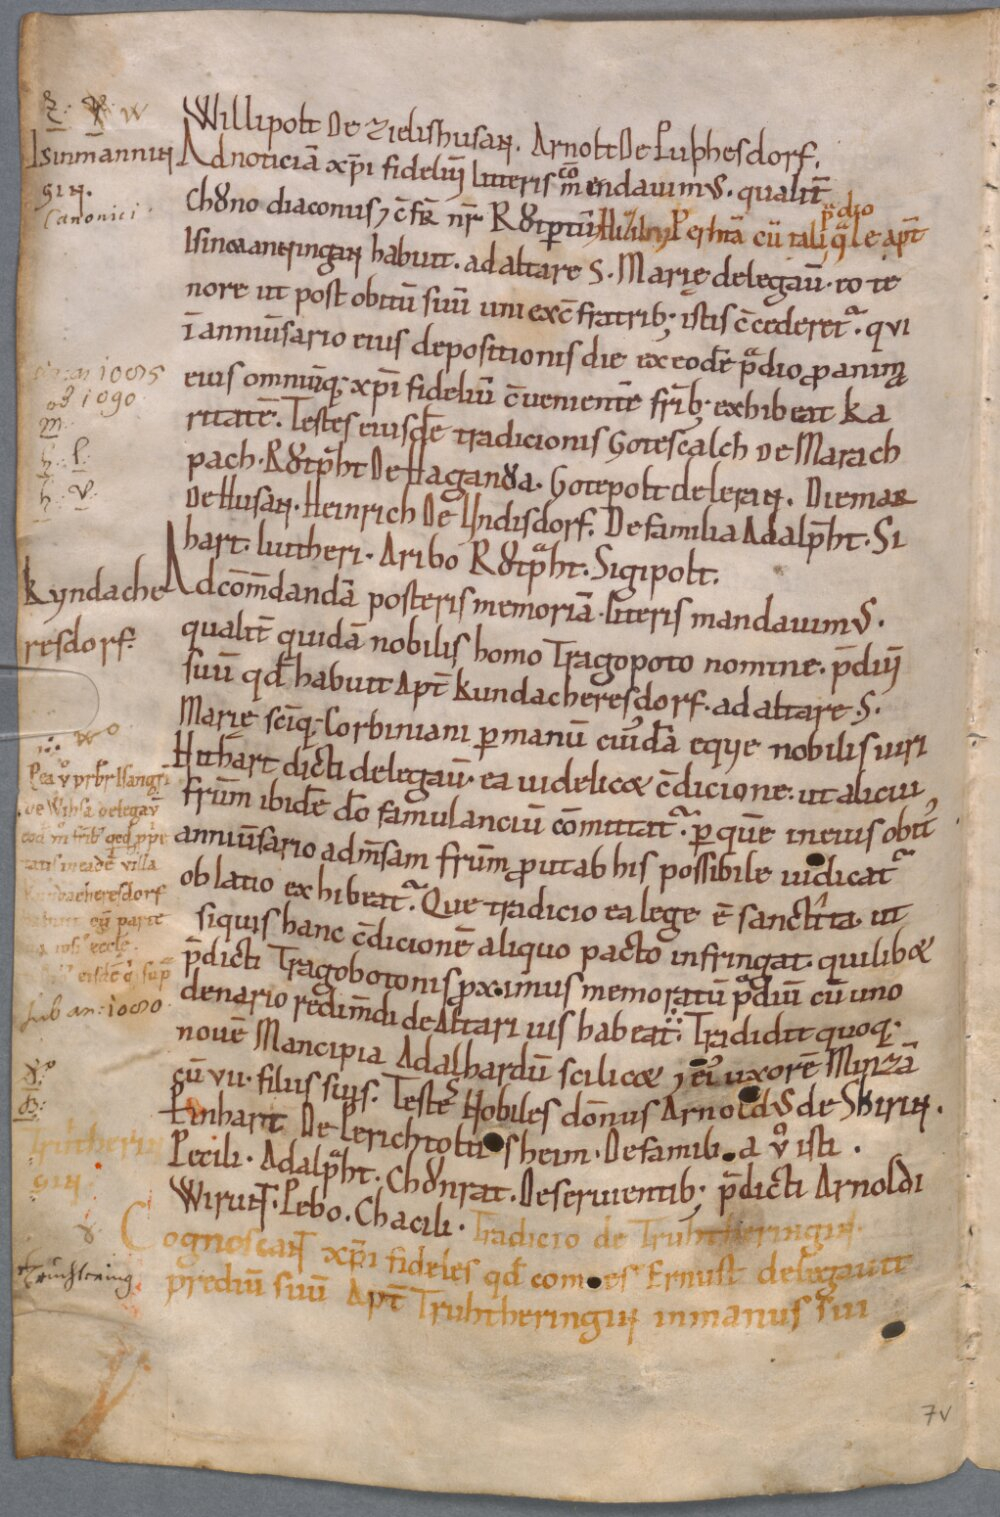 Willipolt De Zidishusan. Arnolt De Luphesdorf.
Isinmannin
gin.
Canonici
Ad noticiā xp̄i fideliū litteris cōmendauimus. qualit̄
Chŏno diaconus, & c̄ fr̄ nr̄ Rŏtp̄tū
Perhtā cū tali p̄dio q̄le apt̄
Isinmanningan habuit. ad altare S. Marię delegau̅. eo te
nore ut post obitū suū uni ex c̄ fratrib; istis c̄cederet᷑. qui
ī anniu̅sario eius depositionis die ex eodē p̄dio pro anima
circa 1085
ad 1090
eius omniūq; xp̄i fideliū c̄uenientē frīb; exhibeat ka
ritatē. Testes eiusdē tradicionis Gotescalch de Marach
pach. Rŏtp̄ht De Haganŏa. Gotepolt de leran. Diemar
De Husan. Heinrich De Undisdorf. De familia Adalp̄ht. Si
hart. Luitheri. Aribo Rŏtp̄ht. Sigipolt.
Kyndache
resdorf.
Ad cōm̄dandā posteris memoriā. literis mandauimus.
qualit̄ quidā nobilis homo Tragopoto nomine. p̄diū
suū qd̄ habuit apt̄ Kundacheresdorf. ad altare S.
Marię sciq; Corbiniani p manū cuiusdā eque nobilis uiri
Hithart dicti delegau̅. ea uidelicet c̄dicione. ut alicui
frūm ibidē do famulanciū cōmittat᷑. p quē in eius obit
anniu̅sario ad m̄sam frūm prout ab his possibile iudicat᷑
oblatio exhibeat᷑. Que tradicio ea lege ē sanctita. ut
siquis hanc c̄dicionē aliquo pacto infringat. quilibet
p̄dicti Tragobotonis proximus memoratū p̄diū cū uno
denario redim̄di de altari ius habeat. Tradidit quoq;
nouē Mancipia Adalhardū scilicet & ei' uxorē Mirzā
cū vii. filiis suis. Testes Nobiles dōnus Arnoldus de Skirin.
Einhart De Perichtoltisheim. De familia v̊ isti.
Pecili. Adalp̄ht. Chŏnrat. De seruientib; p̄dicti Arnoldi
Wirunt. Pebo. Chacili. Tradicio de Truhtheringin.
Cognoscant xp̄i fideles qd̄ comes Ernust delegauit
prediū suū Apt̄ Truhtheringin in manus sui
de Wihsa delegav̄
tatis in eadē villa
Kundacheresdorf
habuit
sub an: 1080
Truhtherin
gin.
Truchtering
7v